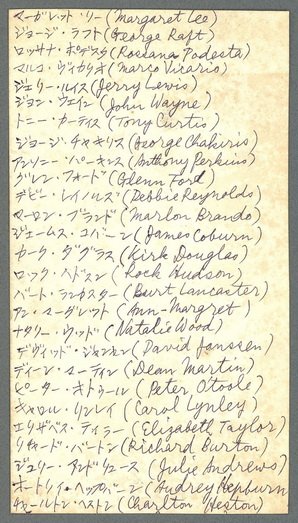 マーガレット・リー (Margaret Lee)
ジョージ・ラフト (George Raft)
ロッサナ・ポデスタ (Rossana Podesta)
マルコ・ヴィカリオ (Marco Vicario)
ジェリー・ルイス (Jerry Lewis)
ジョン・ウェイン (John Wayne)
トニー・カーティス (Tony Curtis)
ジョージ・チャキリス (George Chakiris)
アンソニー・パーキンス (Anthony Perkins)
グレン・フォード (Glenn Ford)
デビー・レイノルズ (Debbie Reynolds)
マーロン・ブランド (Marlon Brando)
ジェームス・コバーン (James Coburn)
カーク・ダグラス (Kirk Douglas)
ロック・ハドスン (Rock Hudson)
バート・ランカスター (Burt Lancaster)
アン・マーグレット (Ann-Margret)
ナタリー・ウッド (Natalie Wood)
デヴィッド・ジャンセン (David Janssen)
ディーン・マーティン (Dean Martin)
ピーター・オトゥール (Peter Otoole)
キャロル・リンレイ (Carol Lynley)
エリザベス・テイラー (Elizabeth Taylor)
リチャード・バートン (Richard Burton)
ジュリー・アンドリュース (Julie Andrews)
オードリィ・ヘップバーン (Audrey Hepburn
チャールトン・ヘストン (Charlton Heston)